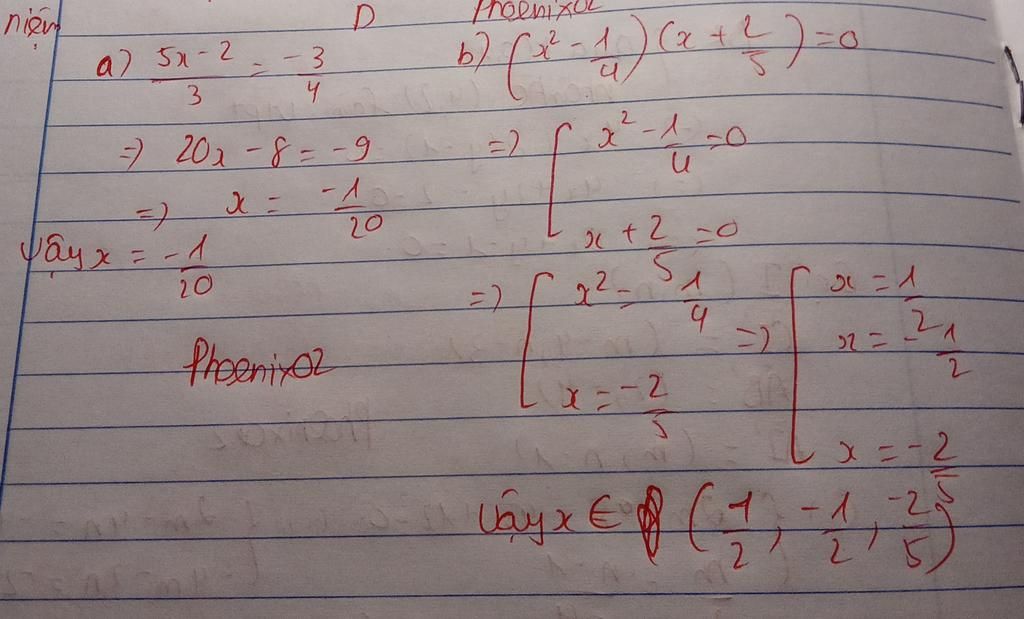 niện D Phoenix02
a) \frac{5x-2}{3} = \frac{-3}{4}
⇒ 20x - 8 = -9
⇒ x = \frac{-1}{20}
Vậy x = \frac{-1}{20}
Phoenix02
b) (x² - \frac{1}{4})(x + \frac{2}{5}) = 0
⇒ [ x² - \frac{1}{4} = 0
x + \frac{2}{5} = 0
⇒ [ x² = \frac{1}{4}
x = \frac{-2}{5}
⇒ [ x = \frac{1}{2}
x = -\frac{1}{2}
x = -\frac{2}{5}
Vậy x ∈ (\frac{1}{2}, \frac{-1}{2}, \frac{-2}{5})